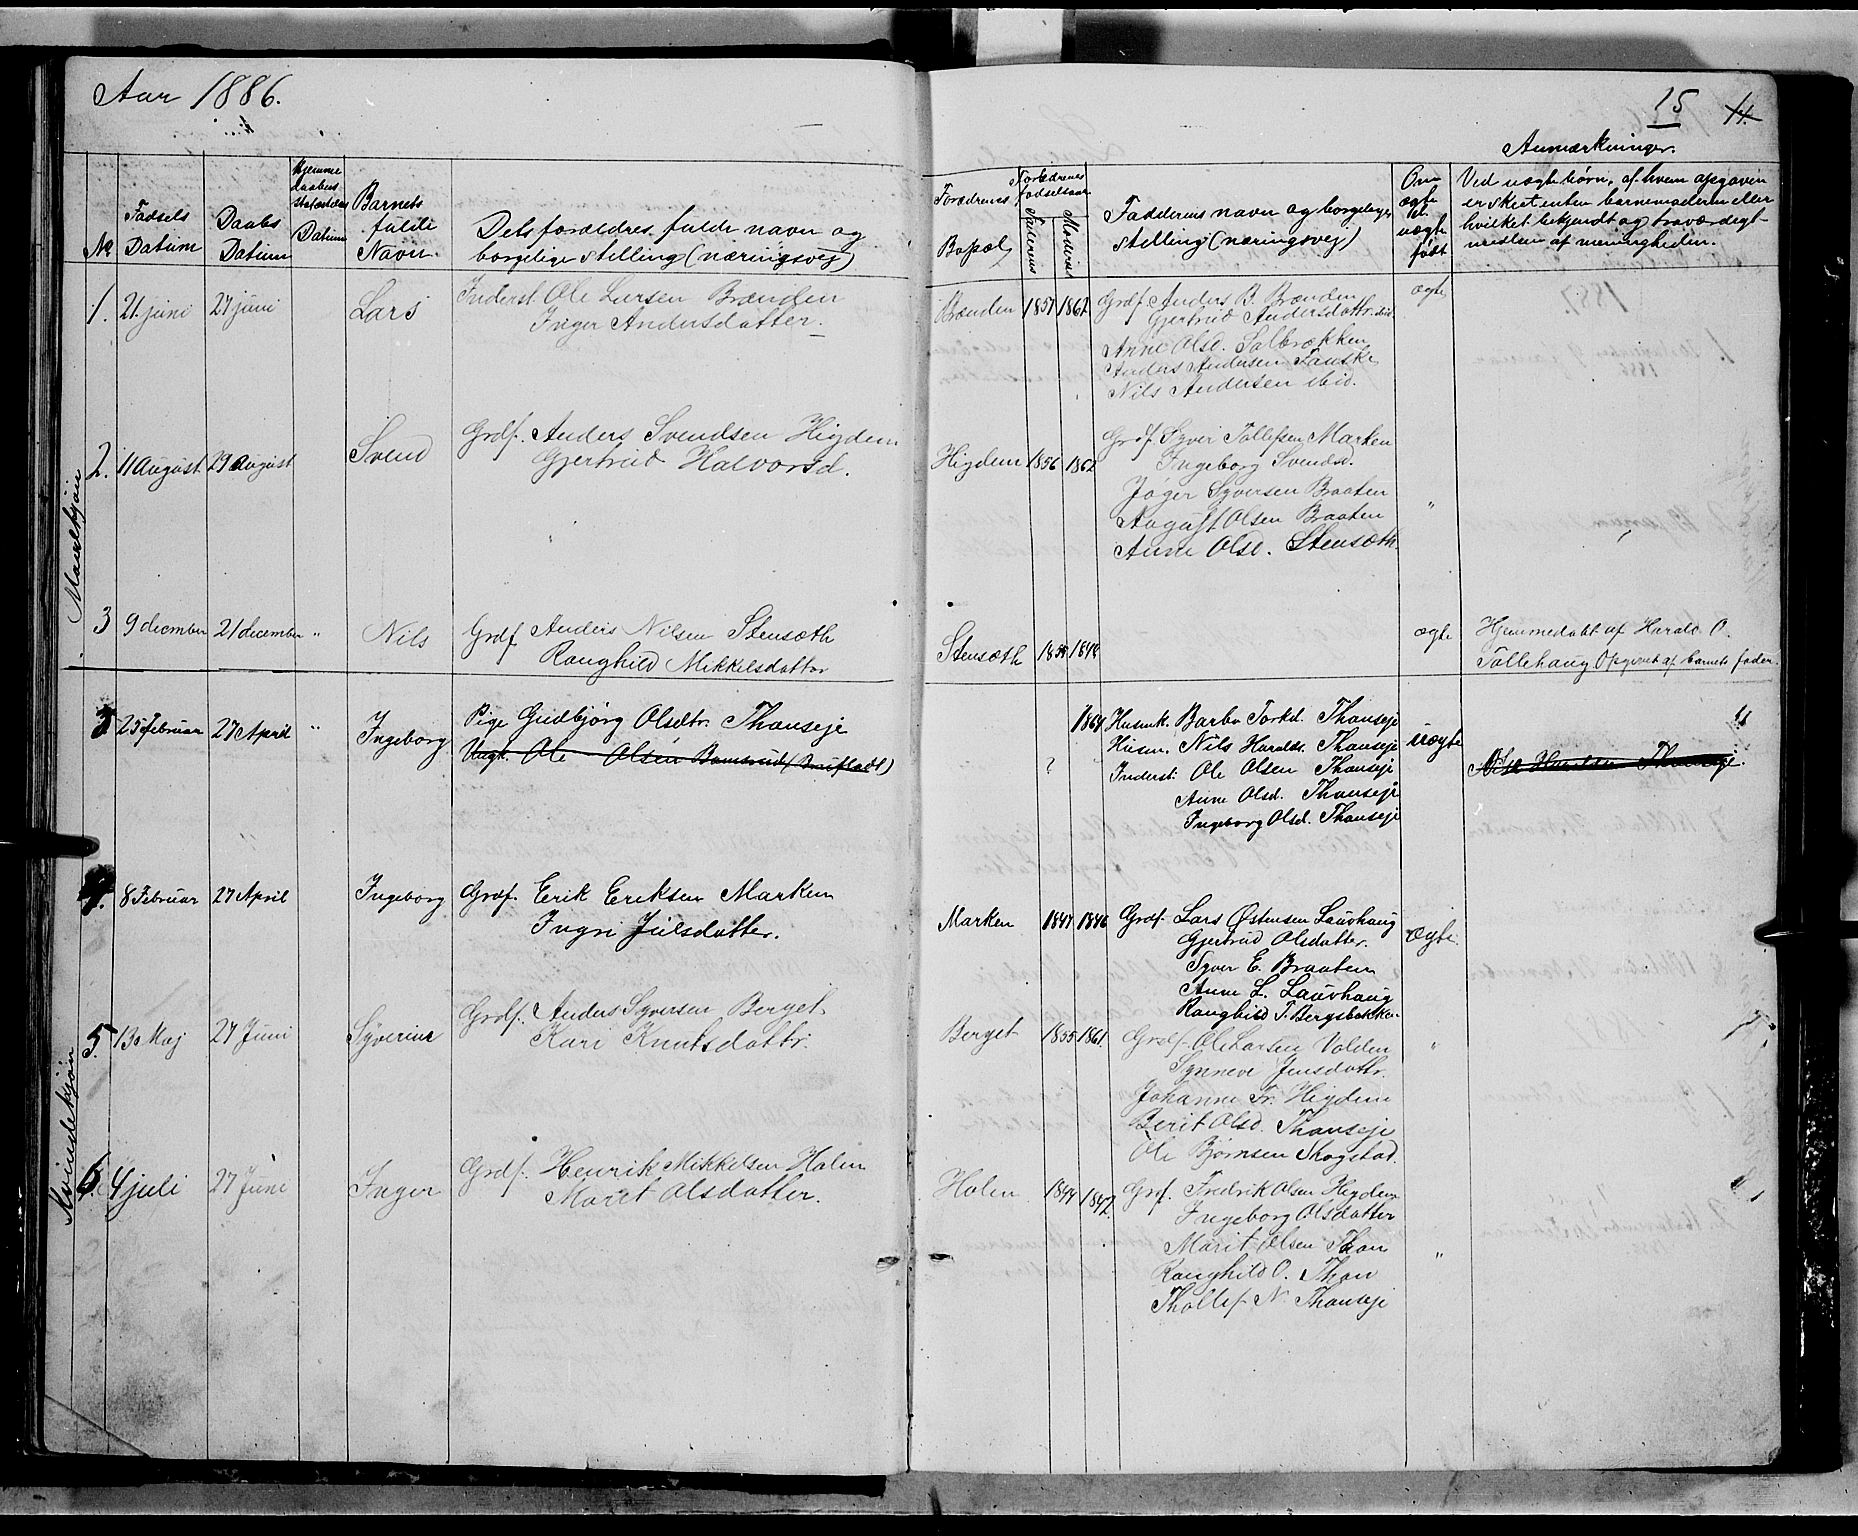 Aar 1886.
15 11.
Anmærkninger.
No
Fødsels Datum
Daabs Datum
Hjemme daabens Stadfæstelses Datum
Barnets fulde Navn.
Dets forældres fulde navn og
borgelige stilling (næringsvej)
Forældrenes Bopæl
Forældrenes fødselsaar
Faderens
Moderens
Faddernes navn og borgeliges
stilling (næringsvej)
Om ægte el. uægte født
Ved uægte børn, af hvem opgaven
er skeet, enten barnemoderen eller
hvilket bekjendt og troværdigt
medlem af menigheden.
Mandkjön
1. 21 juni 27 juni Lars Inderst. Ole Larsen Brænden
Inger Andersdatter.
Brænden 1857 1862 Grdf. Anders B. Brænden ægte
Gjertrud Andersdattr. ibid
Anne Olsd. Solbrækken
Anders Andersen Fauske
Nils Andersen ibid.
2. 11 August 29 August Svend Grdf. Anders Svendsen Higdem
Gjertrud Halvorsd.
Higdem 1856 1862 Grdf. Syver Tollefsen Marken
Ingeborg Svendsd.
Jøger Syversen Braaten
August Olsen Braaten "
Anne Olsd. Stensæth.
3 9 december 21 december " Nils Grdf Anders Nilsen Stensæth
Ranghild Mikkelsdatter
Stensæth 1848 ægte Hjemmedøbt af Harald O.
Tollehaug Opgivet af barnets fader.
Kvindekjön
3 25 Februar 27 April " Ingeborg Pige Gudbjörg Olsdtr. Thanseje
Ungk. Ole Olsen
? 1864 Husmk. Barbo Torkd. Thanseje uægte "
Husm. Nils Haralds. Thanseje
Inderst. Ole Olsen Thanseje
Anne Olsd. Thansejé
Ingeborg Olsd. Thansejé
Nils Haraldsen Thansejé.
4. 8 Februar 27 April Ingeborg Grdf. Erik Eriksen Marken
Ingri Juelsdatter.
Marken 1847 1846 Grdf. Lars Østensen Lauvhaug ægte.
Gjertrud Olsdatter.
Syver E. Braaten
Anne L. Lauvhaug
Ranghild T. Bergsbakken
5. 13 Maj 27 Juni Syverine Grdf. Anders Syversen Berget.
Kari Knutsdattr.
Berget 1855 1861 Grdf. Ole Larsen Volden "
Synneve Jensdattr.
Johanne Fr. Higdem
Berit Olsd. Thansejé
Ole Bjørnsen Skogstad.
6. 4 juli 27 Juni Inger Grdf. Henrik Mikkelsen Holen
Marit Olsdatter.
Holen 1844 1847. Grdf. Fredrik Olsen Higdem
Ingeborg Olsdatter
Marit Olsen Thon "
Ranghild O. Thon
Thollef N. Thansejé